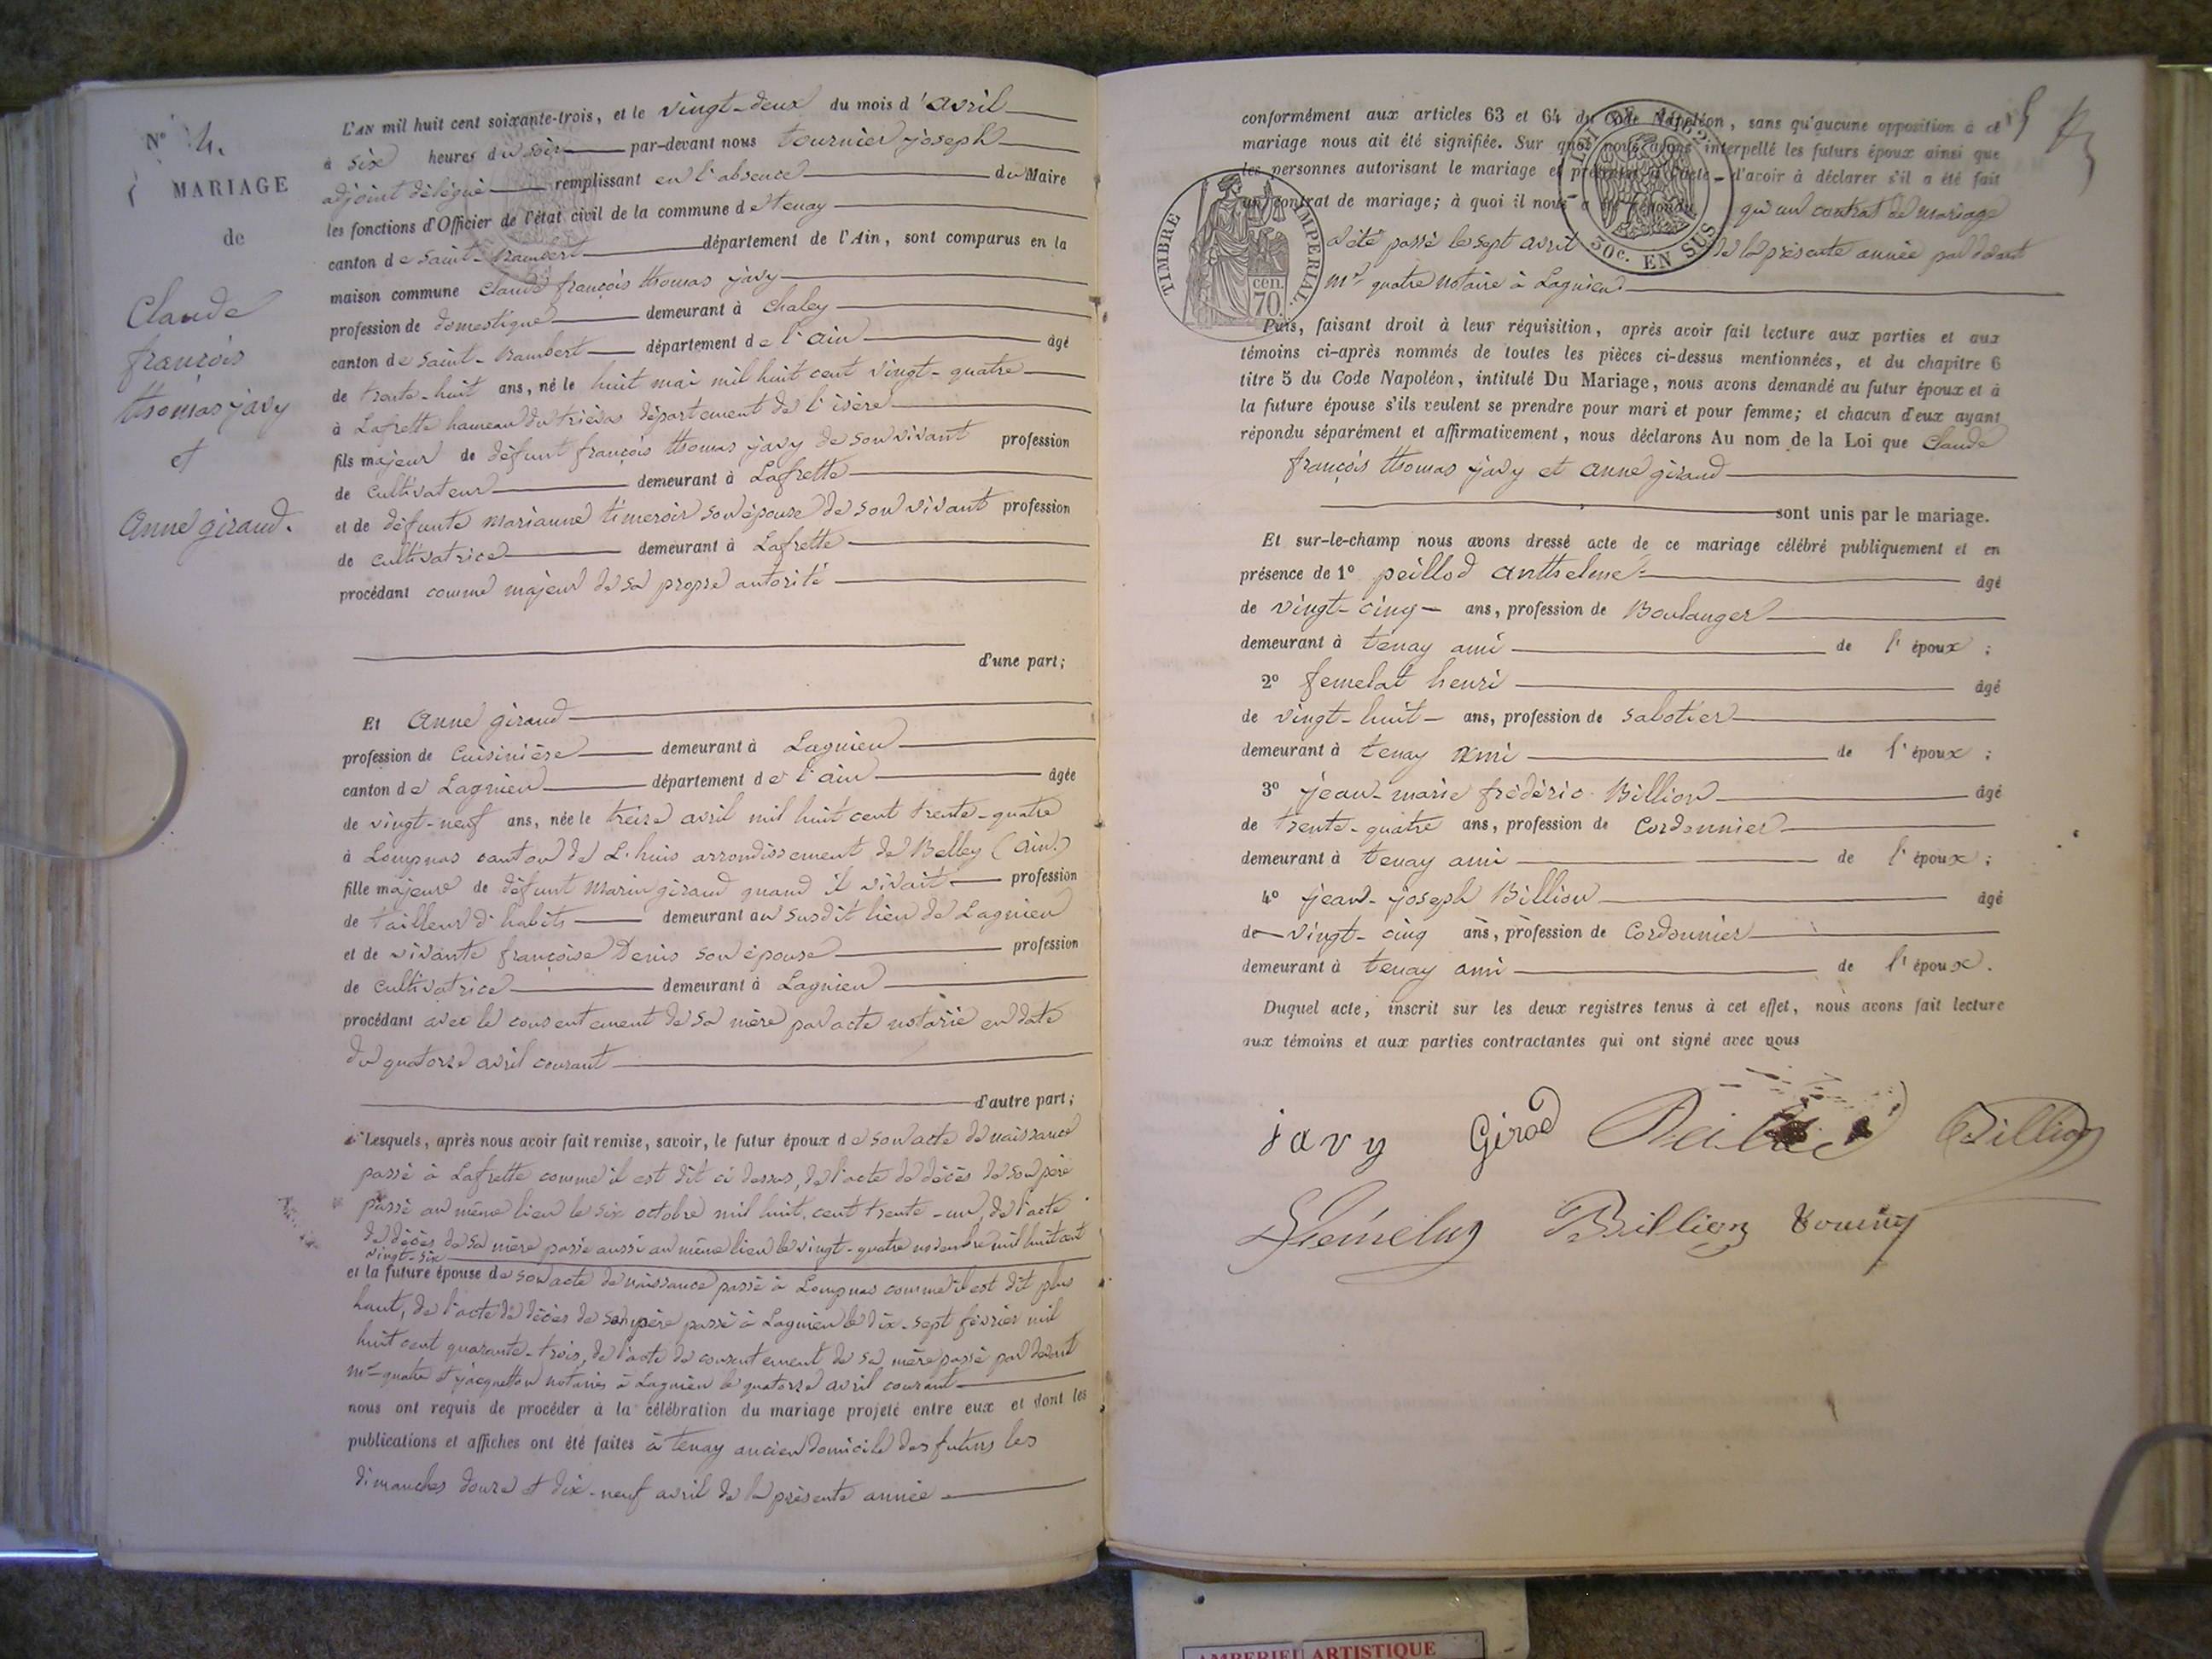 N° 4.
MARIAGE
de
Claude
françois
thomas javy
et
Anne giraud.
L'AN mil huit cent soixante-trois, et le vingt-deux du mois d'avril
à six heures du soir par-devant nous tournier joseph
adjoint délégué remplissant en l'absence du Maire
les fonctions d'Officier de l'état civil de la commune de tenay
canton de saint-Rambert département de l'Ain, sont comparus en la
maison commune Claude françois thomas javy
profession de domestique demeurant à Chaley
canton de saint-Rambert département de l'ain âgé
de trente-huit ans, né le huit mai mil huit cent vingt-quatre
à Lafrette hameau du département de l'isère
fils majeur de défunt françois thomas javy de son vivant profession
de cultivateur demeurant à Lafrette
et de défunte marianne son épouse de son vivant profession
de cultivatrice demeurant à Lafrette
procédant comme majeur de sa propre autorité
d'une part;
Et Anne giraud
profession de Cuisinière demeurant à Lagnieu
canton de Lagnieu département de l'ain âgée
de vingt-neuf ans, née le treize avril mil huit cent trente-quatre
à Lompnas canton de L.huis arrondissement de Belley (ain.)
fille majeure de défunt marin giraud quand il vivait profession
de tailleur d'habits demeurant au susdit lieu de Lagnieu
et de vivante françoise Denis son épouse profession
de cultivatrice demeurant à Lagnieu
procédant avec le consentement de sa mère par acte notarié en date
du quatorze avril courant
d'autre part;
Lesquels, après nous avoir fait remise, savoir, le futur époux de son acte de naissance
passé à Lafrette comme il est dit ci dessus, de l'acte de décès de son père
passé au même lieu le six octobre mil huit cent trente-un, de l'acte
de décès de sa mère passé aussi au même lieu le vingt-quatre novembre mil huit cent
vingt-six
et la future épouse de son acte de naissance passé à Lompnas comme il est dit plus
haut, de l'acte de décès de son père passé à Lagnieu le dix-sept février mil
huit cent quarante-trois, de l'acte de consentement de sa mère passé par devant
mes quatre et jacquetton notaires à Lagnieu le quatorze avril courant
nous ont requis de procéder à la célébration du mariage projeté entre eux et dont les
publications et affiches ont été faites à tenay ancien domicile des futurs les
dimanches douze et dix-neuf avril de la présente année
conformément aux articles 63 et 64 du Code Napoléon, sans qu'aucune opposition à ce
mariage nous ait été signifiée. Sur quoi nous avons interpellé les futurs époux ainsi que
les personnes autorisant le mariage et présentes à l'acte d'avoir à déclarer s'il a été fait
un contrat de mariage; à quoi il nous a été répondu qu'un contrat de mariage
a été passé le sept avril de la présente année par devant
me quatre notaire à Lagnieu
TIMBRE IMPERIAL
cen.
70
50c. EN SUS
Puis, faisant droit à leur réquisition, après avoir fait lecture aux parties et aux
témoins ci-après nommés de toutes les pièces ci-dessus mentionnées, et du chapitre 6
titre 5 du Code Napoléon, intitulé Du Mariage, nous avons demandé au futur époux et à
la future épouse s'ils veulent se prendre pour mari et pour femme; et chacun d'eux ayant
répondu séparément et affirmativement, nous déclarons Au nom de la Loi que Claude
françois thomas javy et anne giraud
sont unis par le mariage.
Et sur-le-champ nous avons dressé acte de ce mariage célébré publiquement et en
présence de 1° peillod anthelme âgé
de vingt-cinq ans, profession de Boulanger
demeurant à tenay ami de l'époux ;
2° femelat henri âgé
de vingt-huit ans, profession de sabotier
demeurant à tenay ami de l'époux ;
3° jean-marie frédéric Billion âgé
de trente-quatre ans, profession de Cordonnier
demeurant à tenay ami de l'époux ;
4° jean-joseph Billion âgé
de vingt-cinq ans, profession de Cordonnier
demeurant à tenay ami de l'époux.
Duquel acte, inscrit sur les deux registres tenus à cet effet, nous avons fait lecture
aux témoins et aux parties contractantes qui ont signé avec nous
javy Girod Billion
Billion
AMBERIEU ARTISTIQUE